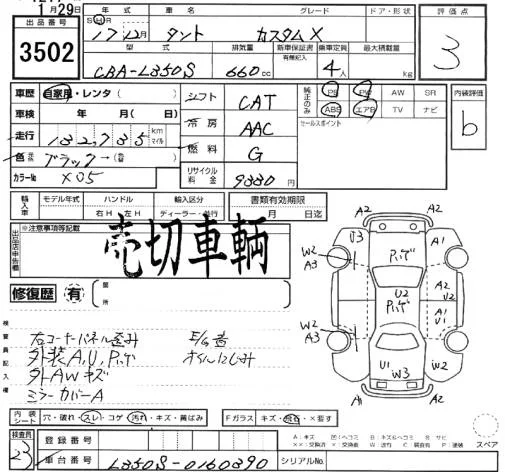 1月29日
出品番号
3502
年式 車名 グレード ドア・形状
SHR 17年12月 タント カスタムX
型式 排気量 新車保証書 乗車定員 最大積載量
有無記入
CBA-L350S 660cc 4人 kg
評価点
3
車歴 自家用・レンタ( )
車検 年 月(日)
走行 132,735 km マイル
色 ブラック→
カラーNo X05
シフト CAT
冷房 AAC
燃料 G
リサイクル料金 9880円
純正のみ
PS PW AW SR
ABS エアB TV ナビ
セールスポイント
内装評価
b
輸入車
モデル年式 ハンドル 輸入区分 書類有効期限
右H 左H ディーラー・並行 月 日迄
出品店申告欄
※注意事項等記載
売切車輌
修復歴 有
箇所
検査員記入欄
右コーナーパネル歪み E/G音
外装A,U,Pハゲ オイルにじみ
外AWキズ
ミラーカバーA
A2 A2
U3 Pハゲ A1
W2 A3
U2 A2
Pハゲ A1 U1
W2 A3
U1 W3
A1 A2
内装シート 穴・破れ・スレ・コゲ・汚れ・キズ・黄ばみ
Fガラス キズ・飛石・×要す
スペア
検査員
23
登録番号
車台番号 L350S-0160390
シリアルNo.